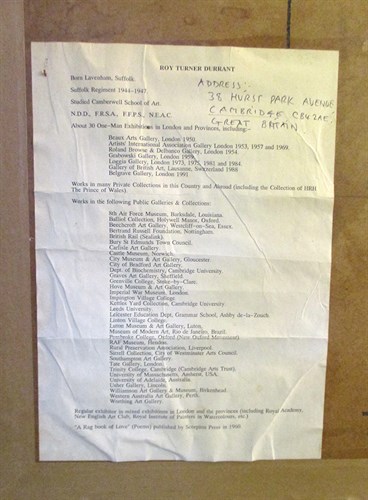 ROY TURNER DURRANT
Born Lavenham, Suffolk.
Suffolk Regiment 1944-1947.
Studied Camberwell School of Art.
N.D.D., F.R.S.A., F.F.P.S., N.E.A.C.
ADDRESS:-
38 HURST PARK AVENUE
CAMBRIDGE CB4 2AE
GREAT BRITAIN
About 30 One-Man Exhibitions in London and Provinces, including:-
Beaux Arts Gallery, London 1950.
Artists' International Association Gallery London 1953, 1957 and 1969.
Roland Browse & Delbanco Gallery, London 1954.
Grabowski Gallery, London 1959.
Loggia Gallery, London 1973, 1975, 1981 and 1984.
Gallery of British Art, Lausanne, Switzerland 1988
Belgrave Gallery, London 1991
Works in many Private Collections in this Country and Abroad (including the Collection of HRH
The Prince of Wales).
Works in the following Public Galleries & Collections:
8th Air Force Museum, Barksdale, Louisiana.
Balliol Collection, Holywell Manor, Oxford.
Beecroft Art Gallery, Westcliff-on-Sea, Essex.
Bertrand Russell Foundation, Nottingham.
British Rail (Sealink).
Bury St Edmunds Town Council.
Carlisle Art Gallery.
Castle Museum, Norwich.
City Museum & Art Gallery, Gloucester
City of Bradford Art Gallery.
Dept. of Biochemistry, Cambridge University.
Graves Art Gallery, Sheffield
Grenville College, Stoke-by-Clare.
Hove Museum & Art Gallery.
Imperial War Museum, London.
Impington Village College.
Kettles Yard Collection, Cambridge University
Leeds University.
Leicester Education Dept, Grammar School, Ashby de-la-Zouch.
Linton Village College.
Luton Museum & Art Gallery, Luton.
Museum of Modern Art, Rio de Janeiro, Brazil.
Pembroke College, Oxford (New Oxford Movement)
RAF Museum, Hendon.
Rural Preservation Association, Liverpool.
Sirrell Collection, City of Westminster Arts Council.
Southampton Art Gallery
Tate Gallery, London
Trinity College, Cambridge (Cambridge Arts Trust).
University of Massachusetts, Amherst, USA.
University of Adelaide, Australia.
Usher Gallery, Lincoln.
Williamson Art Gallery & Museum, Birkenhead.
Western Australia Art Gallery, Perth.
Worthing Art Gallery.
Regular exhibitor in mixed exhibitions in London and the provinces (including Royal Academy,
New English Art Club, Royal Institute of Painters in Watercolours, etc.)
"A Rag book of Love" (Poems) published by Scorpion Press in 1960.